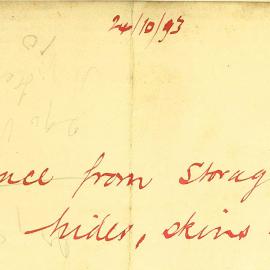 24/10/93
ance from Storag
hides, skins